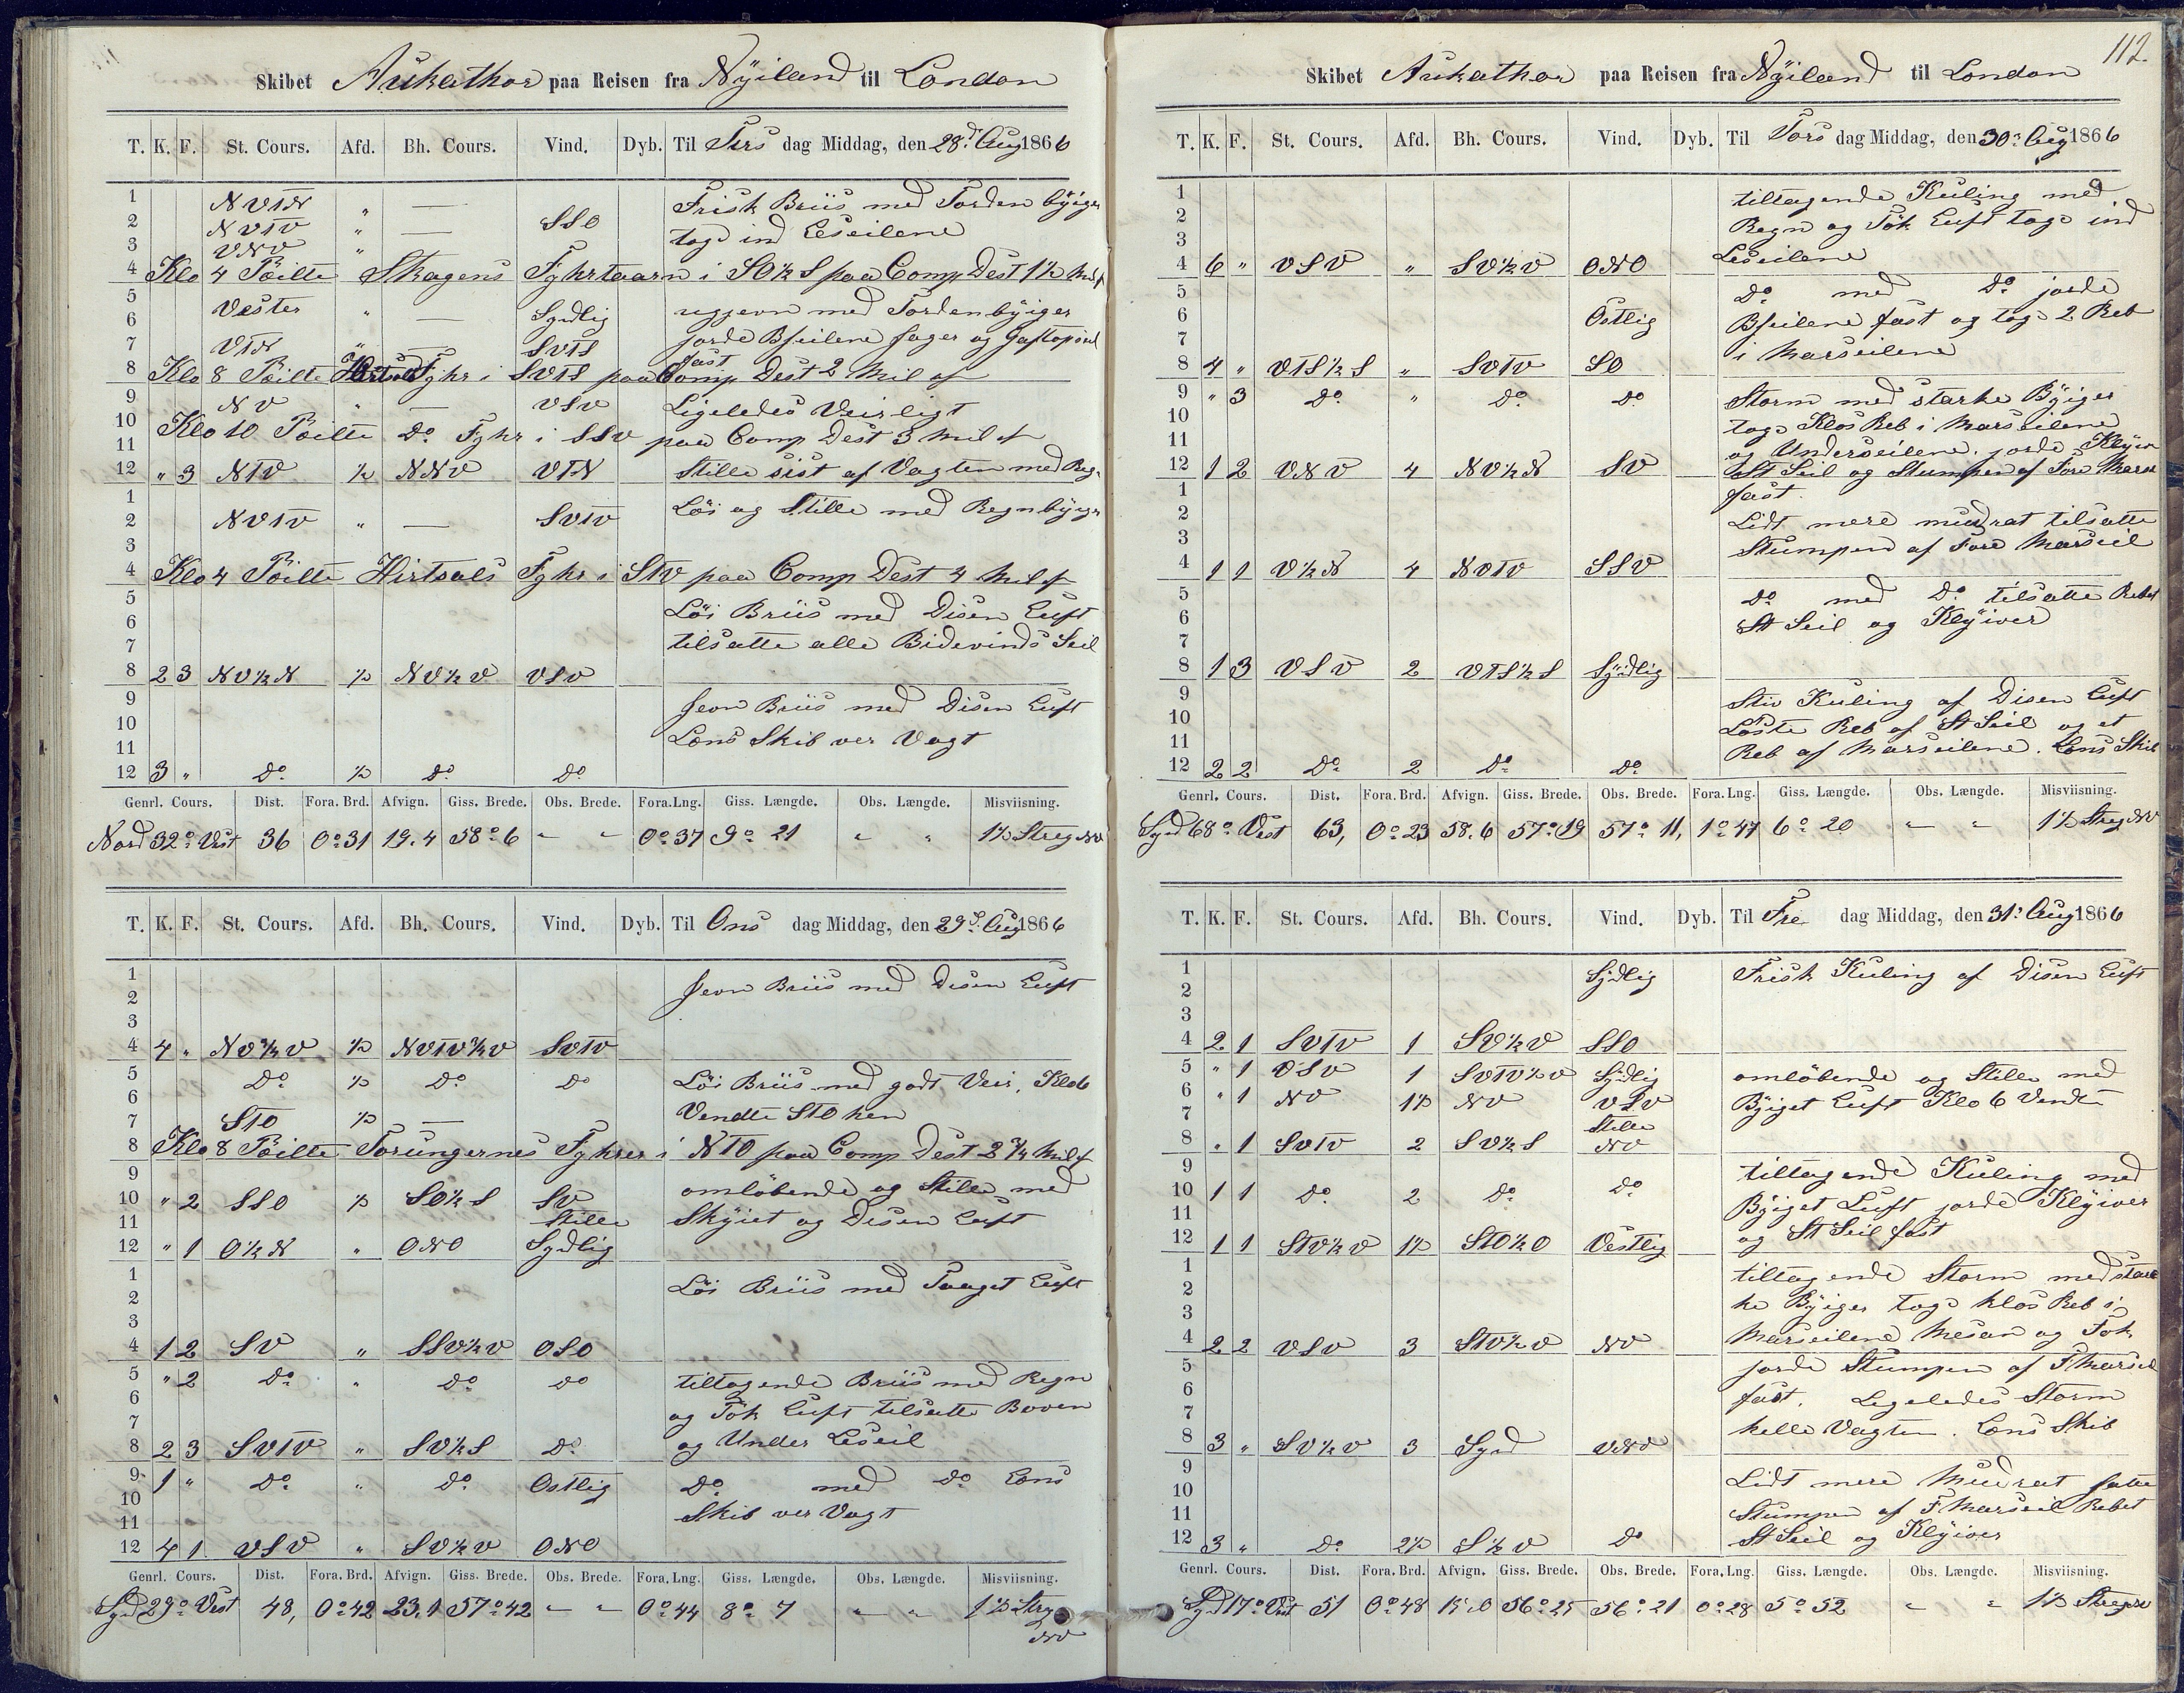 Skibet Aukathor paa Reisen fra Nÿiland til London
T. K. F. St. Cours. Afd. Bh. Cours. Vind. Dyb. Til Tirs dag Middag, den 28d Aug 1866
1 NVTN " — Frisk Briis med Torden bÿiger
2 NVTV " — SSO togs ind Leseilene
3 VNV "
4 Klo 4 Peilte Skagens Fyhrtaarn i SO½S paa Comp Dest 1½ Mil af
5 Vester " — Sydlig ugjevn med Tordenbÿiger
6 jorde Bseilene fager og Gaftopseil
7 VTN " — SVTS fast
8 Klo 8 Peilte Hirtsals Fyhr i SVTS paa Comp Dest 2 Mil af
9 NV " — VSV Ligeledes Veirligt
10 Klo 10 Peilte Do Fyhr i SSV paa Comp Dest 3 Mil af
11
12 " 3 NTV ½ NNV VTN Stille sist af Vagten med Regn
1 Löi og Stille med Regnbÿiger
2 NVTV " — SVTV
3
4 Klo 4 Peilte Hirtsals Fyhr i STV paa Comp Dest 4 Mil af
5 Löi Briis med Disen Luft
6 tilsatte alle Bidevinds Seil
7
8 2 3 NV½N ½ NV½V VSV
9 Jevn Briis med Disen Luft
10 Lens Skib ver Vagt
11
12 3 " Do ½ Do Do
Genrl. Cours. Dist. Fora. Brd. Afvign. Giss. Brede. Obs. Brede. Fora. Lng. Giss. Længde. Obs. Længde. Misviisning.
Nord 32° Vest 36 0°31 19.4 58°6 " " 0°37 9°21 " " 1½ Streg NV
T. K. F. St. Cours. Afd. Bh. Cours. Vind. Dyb. Til Ons dag Middag, den 29d Aug 1866
1 Jevn Briis med Disen Luft
2
3
4 4 " NV¾V ½ NVTV¾V SVTV
5 Do ½ Do Do Löi Briis med godt Veir, Klo 6
6 Vendte STO hen
7 STO ½ —
8 Klo 8 Peilte Torungernes Fyhrer i NTO paa Comp Dest 2¾ Mil af
9 omlöbende og Stille med
10 " 2 SSO ½ SO½S SV Skÿiet og Disen Luft
11 Stille
12 " 1 O½N " ONO Sydlig
1 Löi Briis med Taaget Luft
2
3
4 1 2 SV " SSV½V OSO
5 " 2 Do " Do Do tiltagende Briis med Regn
6 og Tök Luft tilsatte Boven
7 og Under Leseil
8 2 3 SVTV " SV½S Do
9 1 " Do " Do Ostlig Do med Do Lens
10 Skib ver Vagt
11
12 4 1 VSV " SV½V ONO
Genrl. Cours. Dist. Fora. Brd. Afvign. Giss. Brede. Obs. Brede. Fora. Lng. Giss. Længde. Obs. Længde. Misviisning.
Syd 29° Vest 48, 0°42 23.1 57°42 " " 0°44 8°7 " " 1½ Streg NV
112
Skibet Aukathor paa Reisen fra Nÿiland til London
T. K. F. St. Cours. Afd. Bh. Cours. Vind. Dyb. Til Tors dag Middag, den 30d Aug 1866
1 tiltagende Kuling med
2 Regn og Tök Luft togs ind
3 Leseilene
4 6 " VSV " SV½V ONO
5 Do med Do jorde
6 Östlig Bseilene fast og togs 2 Reb
7 i Marseilene
8 4 " VTS½S " SVTV SO
9 " 3 Do " Do Do Storm med starke Bÿiger
10 togs Klos Reb i Marseilene
11 og Underseilene. jorde Klÿiver
12 1 2 VNV 4 NV½N SV St Seil og Stumpen af Fore Mars
1 fast.
2 Lidt mere mudrat tilsatte
3 Stumpen af Fore Marseil
4 1 1 V½N 4 NVTV SSV
5 Do med Do tilsatte Rebet
6 St Seil og Klÿiver
7
8 1 3 VSV 2 VTS½S Sÿdlig
9 Stiv Kuling af Disen Luft
10 Löste Reb af St Seil og et
11 Reb af Marseilene. Lens Skib
12 2 2 Do 2 Do Do
Genrl. Cours. Dist. Fora. Brd. Afvign. Giss. Brede. Obs. Brede. Fora. Lng. Giss. Længde. Obs. Længde. Misviisning.
Syd 68° Vest 63, 0°23 58.6 57°19 57°11, 1°47 6°20 " " 1½ Streg NV
T. K. F. St. Cours. Afd. Bh. Cours. Vind. Dyb. Til Fre dag Middag, den 31d Aug 1866
1 Sydlig Frisk Kuling af Disen Luft
2
3
4 2 1 SVTV 1 SV½V SSO
5 " 1 VSV 1 SVTV½V Sydlig omlöbende og Stille med
6 " 1 NV 1½ NV VSV Bÿiget Luft Klo 6 Vendte
7 Stille
8 " 1 SVTV 2 SV½S NV
9 tiltagende Kuling med
10 1 1 Do 2 Do Do Bÿiget Luft jorde Klÿiver
11 og St Seil fast
12 1 1 STV½V 1½ STO½O Vestlig
1 tiltagende Storm med star
2 ke Bÿiger togs klos Reb i
3 Marseilene Mesan og Fok
4 2 2 VSV 3 STV½V NV
5 jorde Stumpen af F Marseil
6 fast. Ligeledes Storm
7 helle Vagten. Lens Skib
8 3 " SV½V 3 Syd VNV
9 Lidt mere Mudrat satte
10 Stumpen af F Marseil Rebet
11 St Seil og Klÿiver
12 3 " Do 2½ S½V Do
Genrl. Cours. Dist. Fora. Brd. Afvign. Giss. Brede. Obs. Brede. Fora. Lng. Giss. Længde. Obs. Længde. Misviisning.
Syd 17° Vest 51 0°48 15.0 56°25 56°21 0°28 5°52 " " 1½ Streg NV